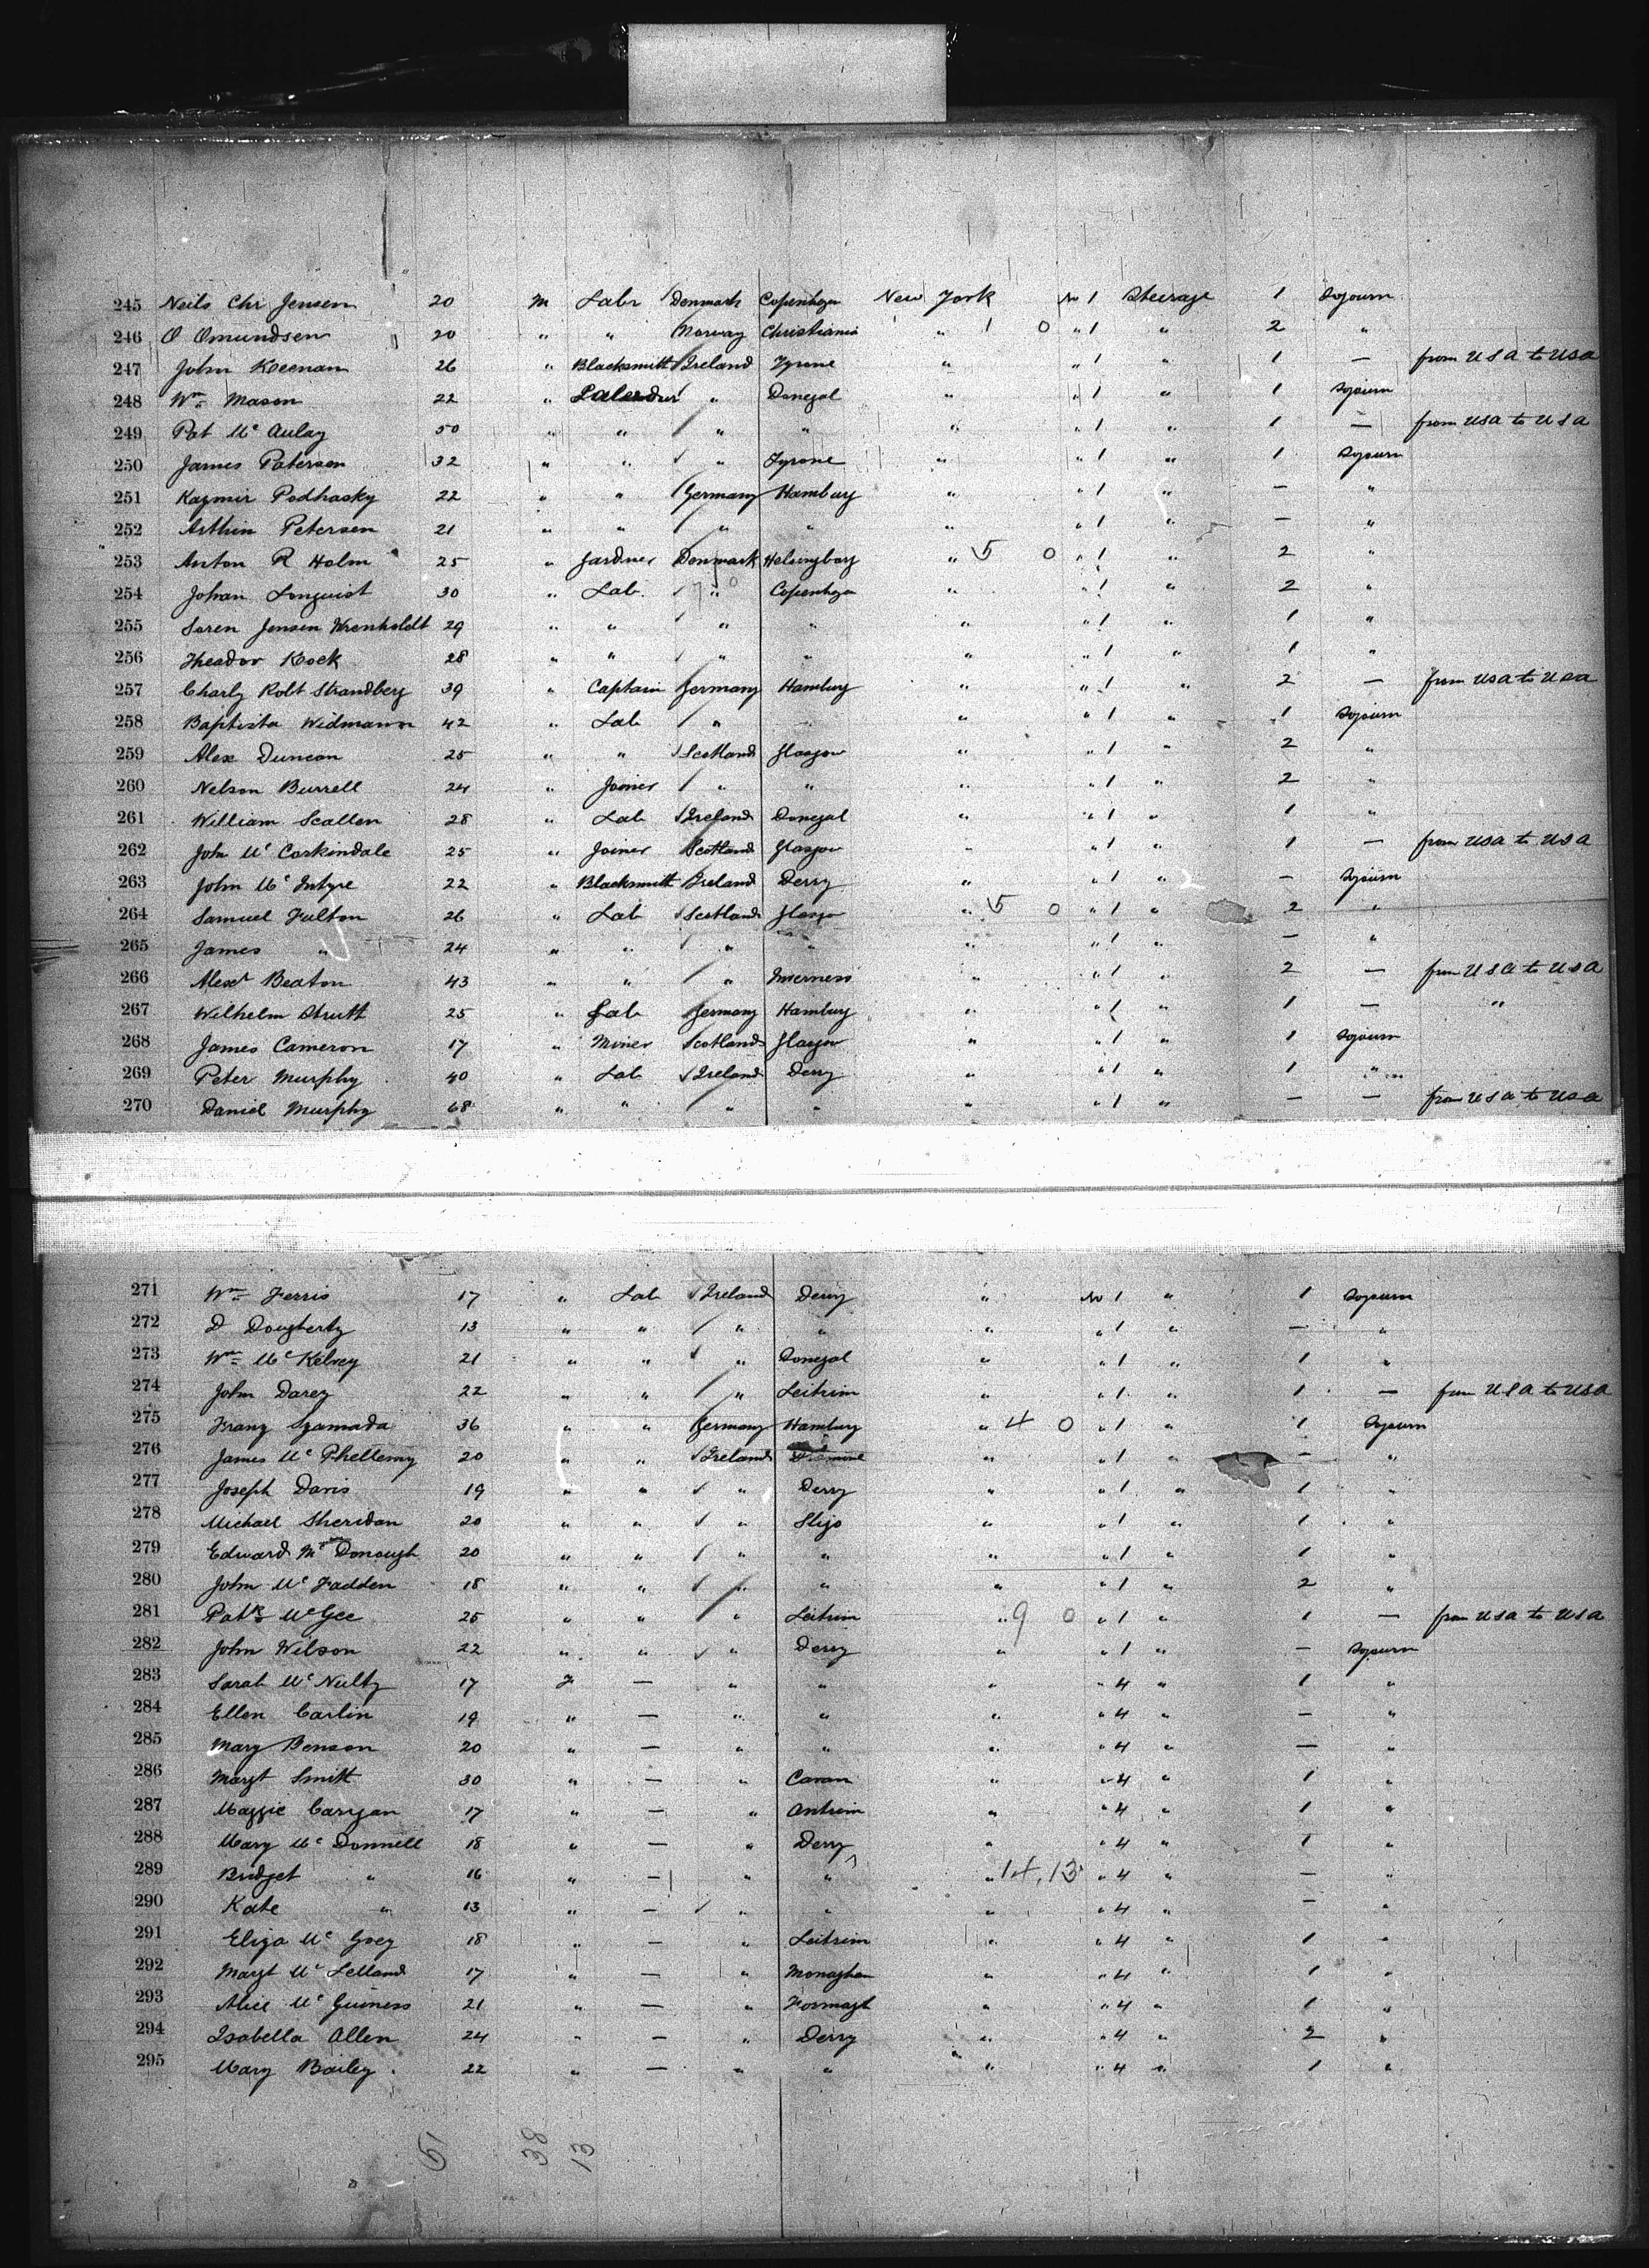 245 Neils Chr Jensen 20 M Labr Denmark Copenhgn New York No 1 Steerage 1 Sojourn
246 O Omundsen 20 " " Norway Christiania " 1 0 " 1 " 2 "
247 John Keenan 26 " Blacksmith Ireland Tyrone " " 1 " 1 — from USA to USA
248 Wm Mason 22 " " Donegal " " 1 " 1 Sojourn
249 Pat Mc Aulay 50 " " " " " " 1 " 1 — from USA to USA
250 James Paterson 32 " " " Tyrone " " 1 " 1 Sojourn
251 Kazmir Podhasky 22 " " Germany Hamburg " " 1 " — "
252 Arthur Petersen 21 " " " " " " 1 " — "
253 Anton R Holm 25 " Gardner Denmark Helsingborg " 5 0 " 1 " 2 "
254 Johan Lonquist 30 " Lab. " Copenhgn " " 1 " 2 "
255 Soren Jensen Wrenholdt 29 " " " " " " 1 " 1 "
256 Theador Kock 28 " " " " " " 1 " 1 "
257 Charly Robt Strandberg 39 " Captain Germany Hamburg " " 1 " 2 — from USA to USA
258 Baptista Widmann 42 " Lab " " " 1 " 1 Sojourn
259 Alex Duncan 25 " " Scotland Glasgow " " 1 " 2 "
260 Nelson Burrell 24 " Joiner " " " " 1 " 2 "
261 William Scallen 28 " Lab Ireland Donegal " " 1 " 1 "
262 John Mc Corkindale 25 " Joiner Scotland Glasgow " " 1 " 1 — from USA to USA
263 John Mc Intyre 22 " Blacksmith Ireland Derry " " 1 " — Sojourn
264 Samuel Fulton 26 " Lab Scotland Glasgo " 5 0 " 1 " 2 "
265 James " 24 " " " " " " 1 " — "
266 Alexr Beaton 43 " " " Inverness " " 1 " 2 — from USA to USA
267 Wilhelm Strutt 25 " Lab Germany Hamburg " " 1 " 1 — "
268 James Cameron 17 " Miner Scotland Glasgow " " 1 " 1 Sojourn
269 Peter Murphy 40 " Lab Ireland Derry " " 1 " 1 "
270 Daniel Murphy 68 " " " " " " 1 " — — from USA to USA
271 Wm Ferris 17 " Lab Ireland Derry " No 1 " 1 Sojourn
272 D Dougherty 13 " " " " " " 1 " — "
273 Wm Mc Kelvey 21 " " " Donegal " " 1 " 1 "
274 John Darcy 22 " " " Leitrim " " 1 " 1 — from USA to USA
275 Franz Szamada 36 " " Germany Hamburg " 4 0 " 1 " 1 Sojourn
276 James Mc Phellemy 20 " " Ireland " " 1 " — "
277 Joseph Davis 19 " " " Derry " " 1 " 1 "
278 Michael Sheridan 20 " " " Sligo " " 1 " 1 "
279 Edward Mc Donough 20 " " " " " " 1 " 1 "
280 John Mc Fadden 18 " " " " " " 1 " 2 "
281 Patk McGee 25 " " " Leitrim " 9 0 " 1 " 1 — from USA to USA
282 John Wilson 22 " " " Derry " " 1 " — Sojourn
283 Sarah Mc Nulty 17 F — " " " " 4 " 1 "
284 Ellen Carlin 19 " — " " " " 4 " — "
285 Mary Benson 20 " — " " " " 4 " — "
286 Margt Smith 30 " — " Cavan " " 4 " 1 "
287 Maggie Cargan 17 " — " Antrim " " 4 " 1 "
288 Mary Mc Donnell 18 " — " Derry " " 4 " 1 "
289 Bridget " 16 " — " " " 14.13 " 4 " — "
290 Kate " 13 " — " " " " 4 " — "
291 Eliza Mc Goey 18 " — " Leitrim " " 4 " 1 "
292 Margt Mc Lelland 17 " — " Monaghan " " 4 " 1 "
293 Alice Mc Guiness 21 " — " Formagh " " 4 " 1 "
294 Isabella Allen 24 " — " Derry " " 4 " 2 "
295 Mary Bailey 22 " — " " " " 4 " 1 "
38 13